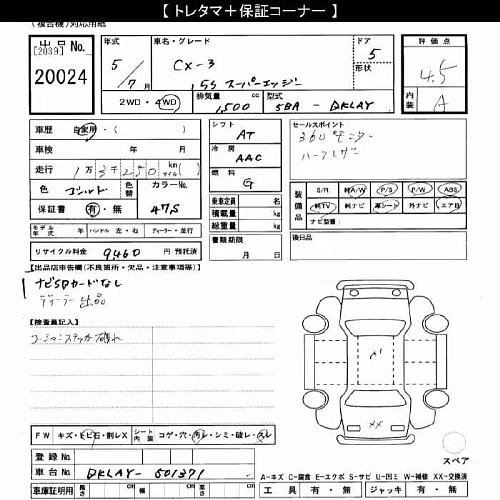 【 トレタマ＋保証コーナー 】
(複合機)対応用紙
出品 No.
[2039]
20024
年式
5/7月
車名・グレード
CX-3
15S スーパーエッジー
ドア
5
形状
2WD・4WD
排気量
1,500 cc
型式
5BA - DKLAY
評価点
4.5
内装
A
車歴 自家用・( )
車検 年 月
走行 1万3千250 km(マイル)
色 ゴールド 色替 カラーNo. 47S
保証書 有・無
モデル年式 年 ハンドル 左・右 ディーラー・並行
リサイクル料金 9460 円 預託済
シフト
AT
冷房
AAC
燃料
G
乗車定員 名
積載量 kg
車両重量 kg
書類期限
月 日
セールスポイント
360°モニター
ハーフレザー
装備品
S/R 純A/W P/S P/W ABS
純TV 純ナビ 革シート 外ナビ エアB
ナビ型番:
後日品
【出品店申告欄(不良箇所・欠品・注意事項等)】
ナビSDカードなし
ディーラー出品
【検査員記入】
コーションステッカー破れ
FW キズ・ヒビ・石・割レX シート内装 コゲ・穴・汚レ・シミ・破レ・スレ
登録 No.
車台 No. DKLAY-501371
車庫証明用 長さ cm 幅 cm 高さ cm
XX
スペア
A―キズ C―腐食 E―エクボ S―サビ U―凹ミ W―補修 XX―交換済
工具 有・無 ジャッキ 有・無